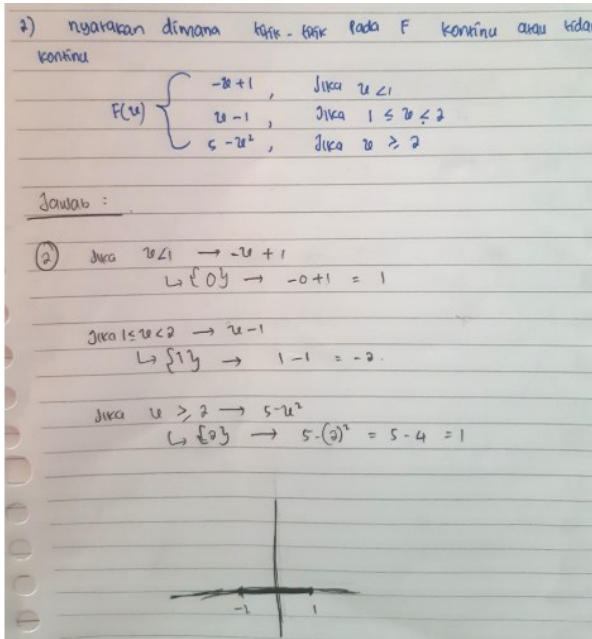 2) nyatakan dimana titik-titik pada F kontinu atau tida
kontinu
F(x) { -x+1 , Jika x<1
x-1 , Jika 1 ≤ x < 2
5-x² , Jika x ≥ 2
Jawab :
2 Jika x<1 → -x+1
↳ {0} → -0+1 = 1
Jika 1≤x<2 → x-1
↳ {1} → 1-1 = -2.
Jika x ≥ 2 → 5-x²
↳ {2} → 5-(2)² = 5-4 = 1
-2 1